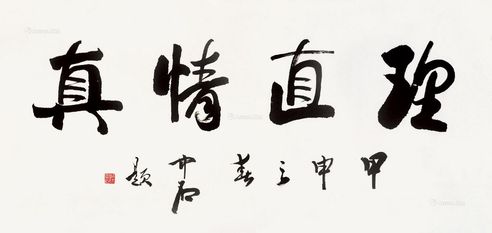 理直情真
甲申之春中石題